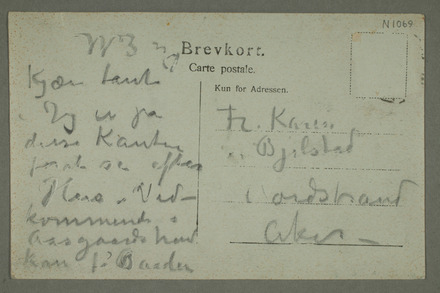 N1069
Brevkort.
Carte postale.
Kun for Adressen.
Kjære tante
Jeg er paa
disse Kanter
for at se efter
Hus. Ved-
kommende i
Aasgaardstrand
kan få Baaden
Fr. Karen
Bjelstad
Nordstrand
Aker